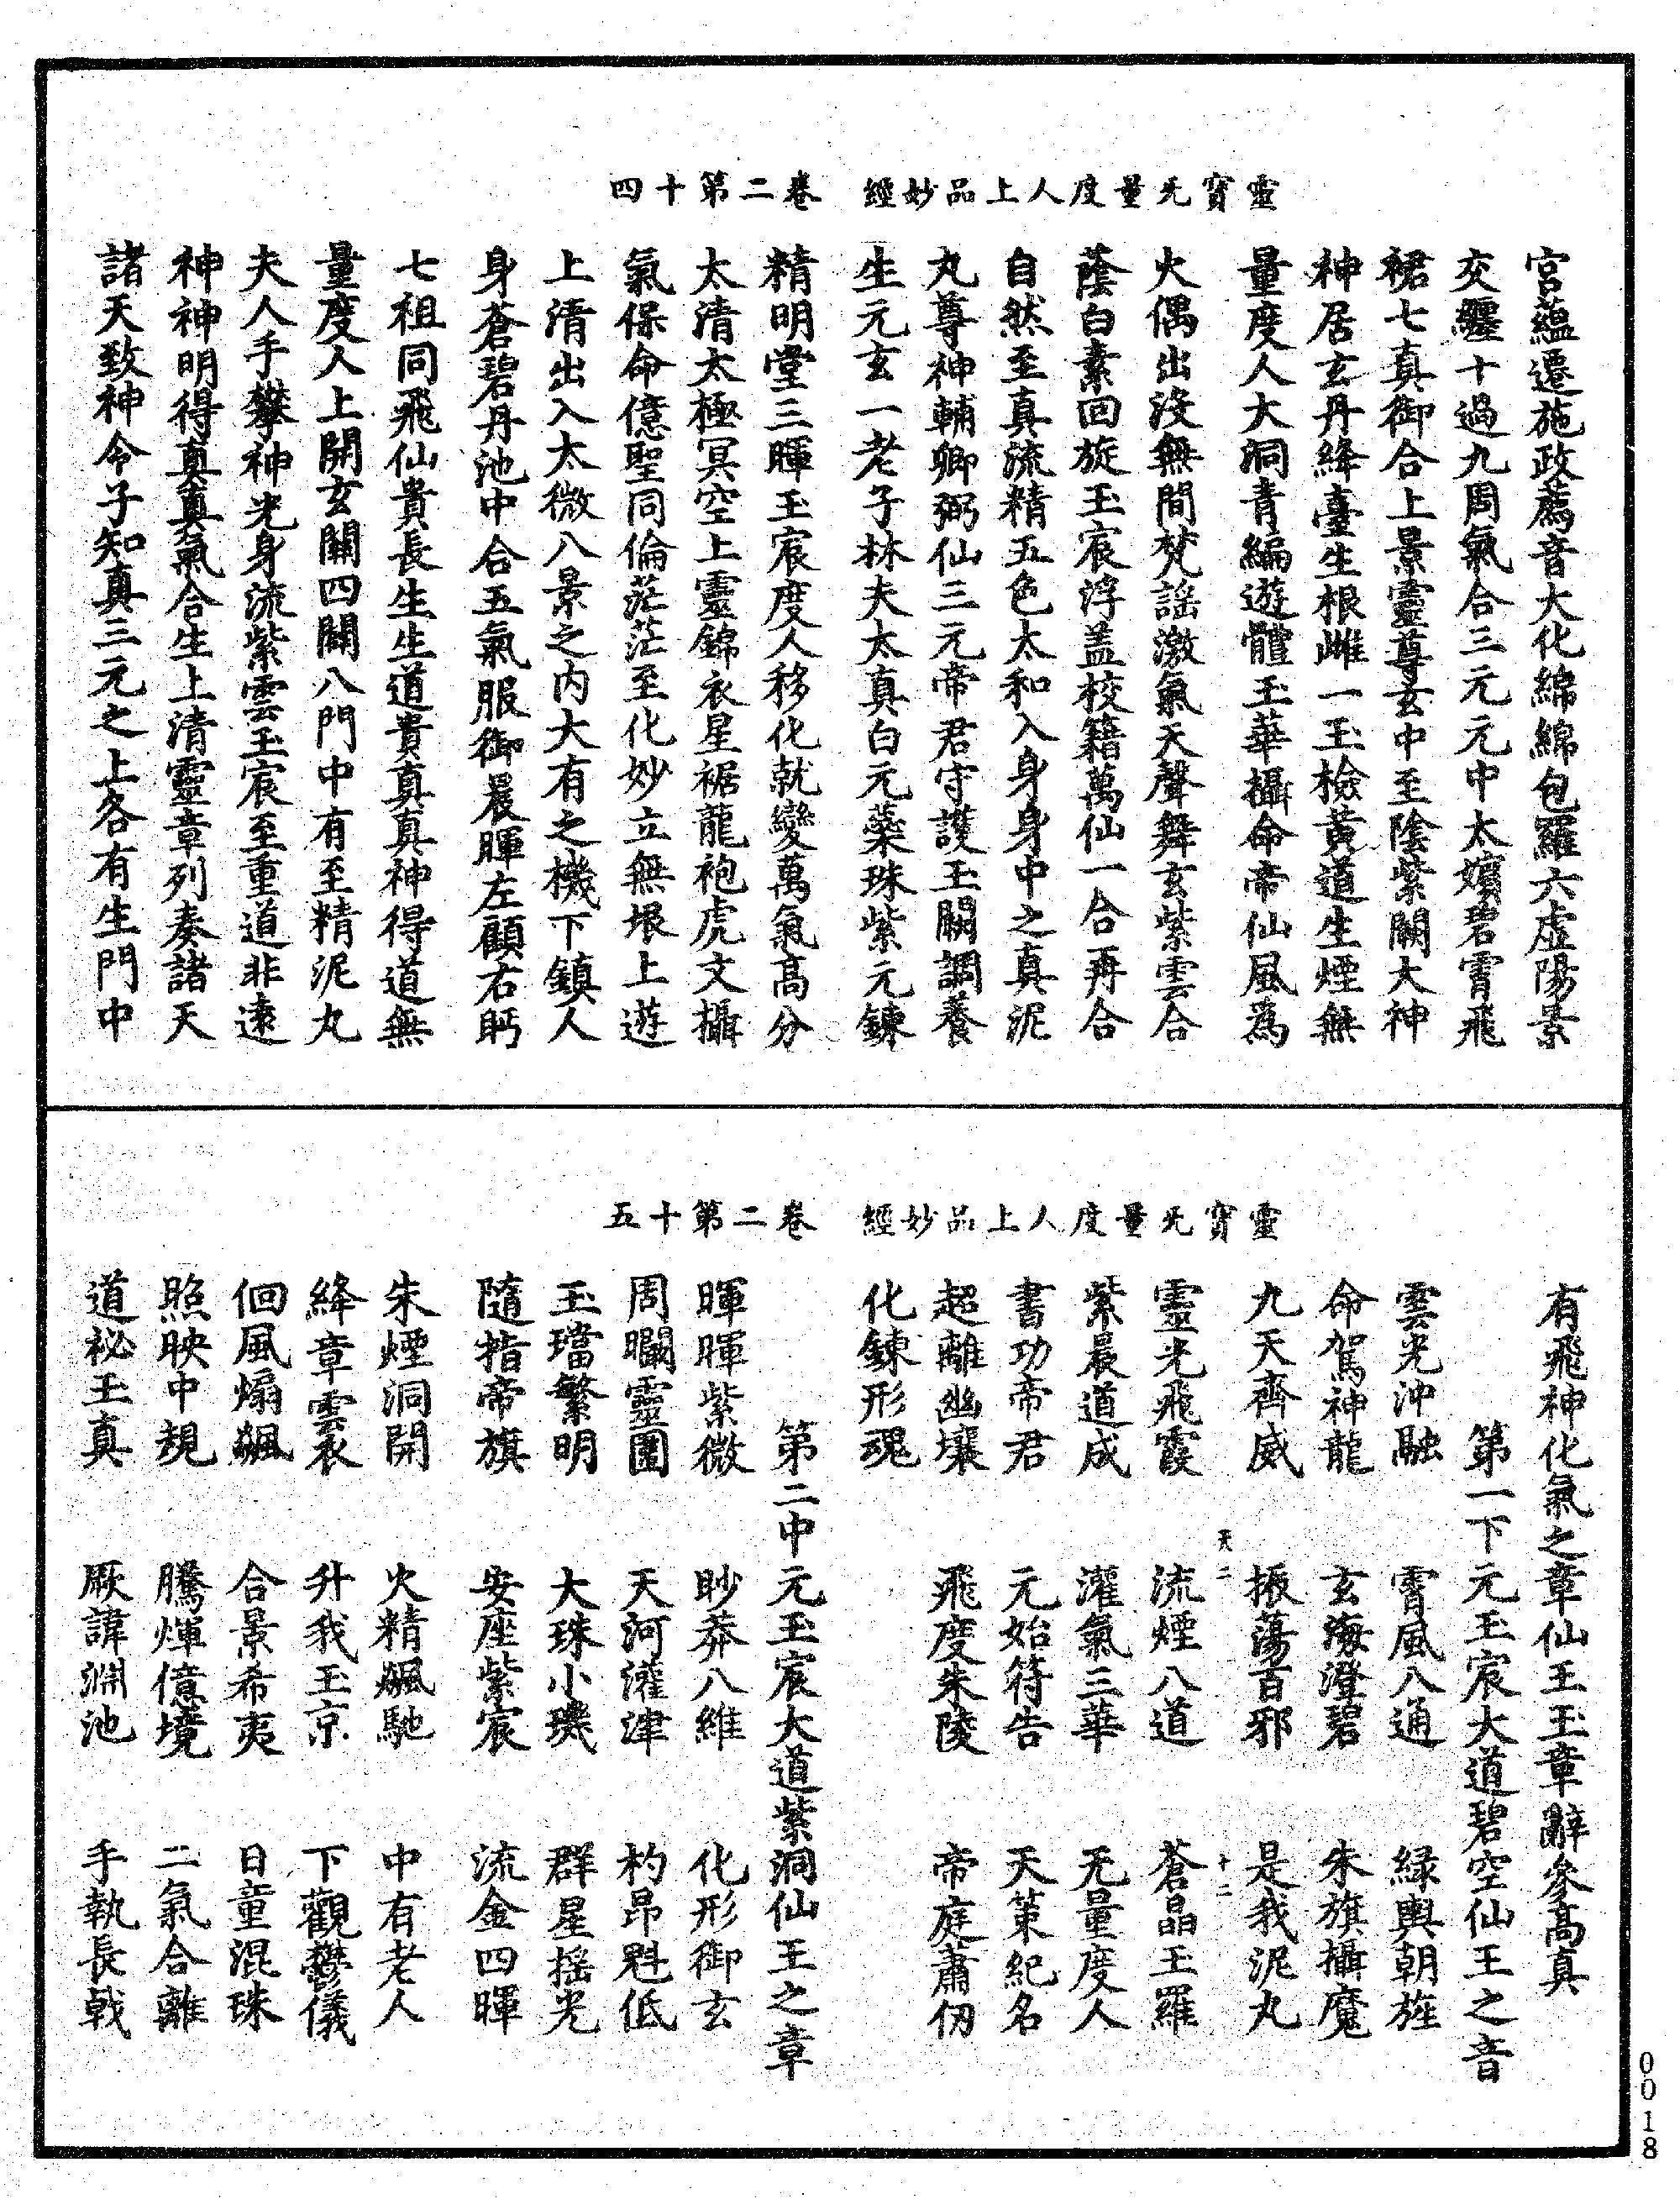 靈寶无量度人上品妙經　卷二第十四
宮蘊遷施政薦音大化綿綿包羅六虛陽景
交纏十過九周氣合三元元中太嬪碧霄飛
裙七真御合上景靈尊玄中至陰紫闕大神
神居玄丹絳臺生根雌一玉檢黃道生煙無
量度人大洞青編遊體玉華攝命帝仙風為
火偶出沒無間梵謠激氣天聲舞玄紫雲合
蔭白素回旋玉宸浮盖校籍萬仙一合再合
自然至真流精五色太和入身身中之真泥
丸尊神輔卿弼仙三元帝君守護玉闕調養
生元玄一老子林夫太真白元藥珠紫元鍊
精明堂三暉玉宸度人移化就變萬氣高分
太清太極冥空上靈錦衣星裾龍袍虎文攝
氣保命億聖同倫茫茫至化妙立無垠上遊
上清出入太微八景之內大有之機下鎮人
身蒼碧丹池中合五氣服御晨暉左顧右眄
七祖同飛仙貴長生生道貴真真神得道無
量度人上開玄關四闢八門中有至精泥丸
夫人手攀神光身流紫雲玉宸至重道非遠
神神明得真真氣合生上清靈章列奏諸天
諸天致神令子知真三元之上各有生門中
靈寶无量度人上品妙經　卷二第十五
有飛神化氣之章仙王玉章辭參高真
第一下元玉宸大道碧空仙王之音
雲光沖融　霄風八通　綠輿朝旌
命駕神龍　玄海澄碧　朱旗攝魔
九天齊威　振蕩百邪　是我泥丸
天二　十二
靈光飛霞　流煙八道　蒼晶玉羅
紫晨道成　灌氣三華　无量度人
書功帝君　元始符告　天策紀名
超離幽壤　飛度朱陵　帝庭肅仞
化鍊形魂
第二中元玉宸大道紫洞仙王之章
暉暉紫微　眇莽八維　化形御玄
周矙靈圖　天河灌津　杓昂魁低
玉璫繁明　大珠小璣　群星搖光
隨指帝旗　安座紫宸　流金四暉
朱煙洞開　火精飆馳　中有老人
絳章雲衣　升我玉京　下觀鬱儀
佪風煽飆　合景希夷　日童混珠
照映中規　騰輝億境　二氣合離
道祕玉真　厥諱淵池　手執長戟
0018